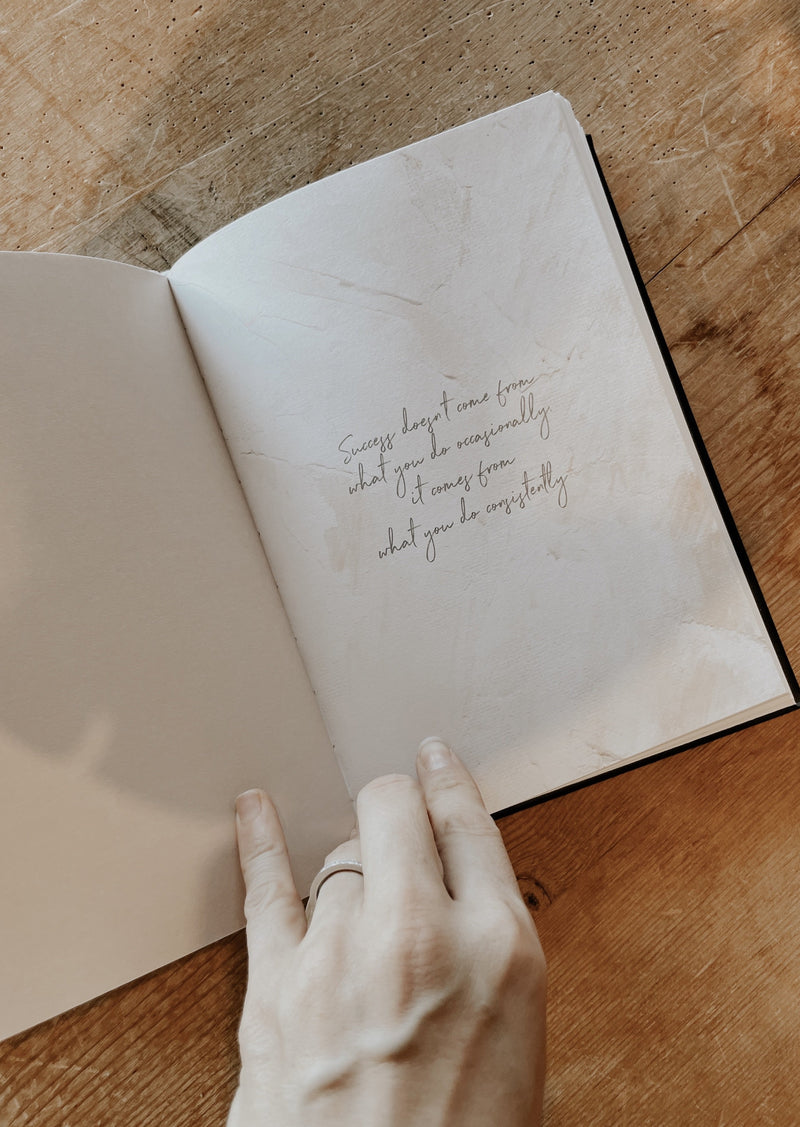 Success doesn't come from
what you do occasionally.
it comes from
what you do consistently